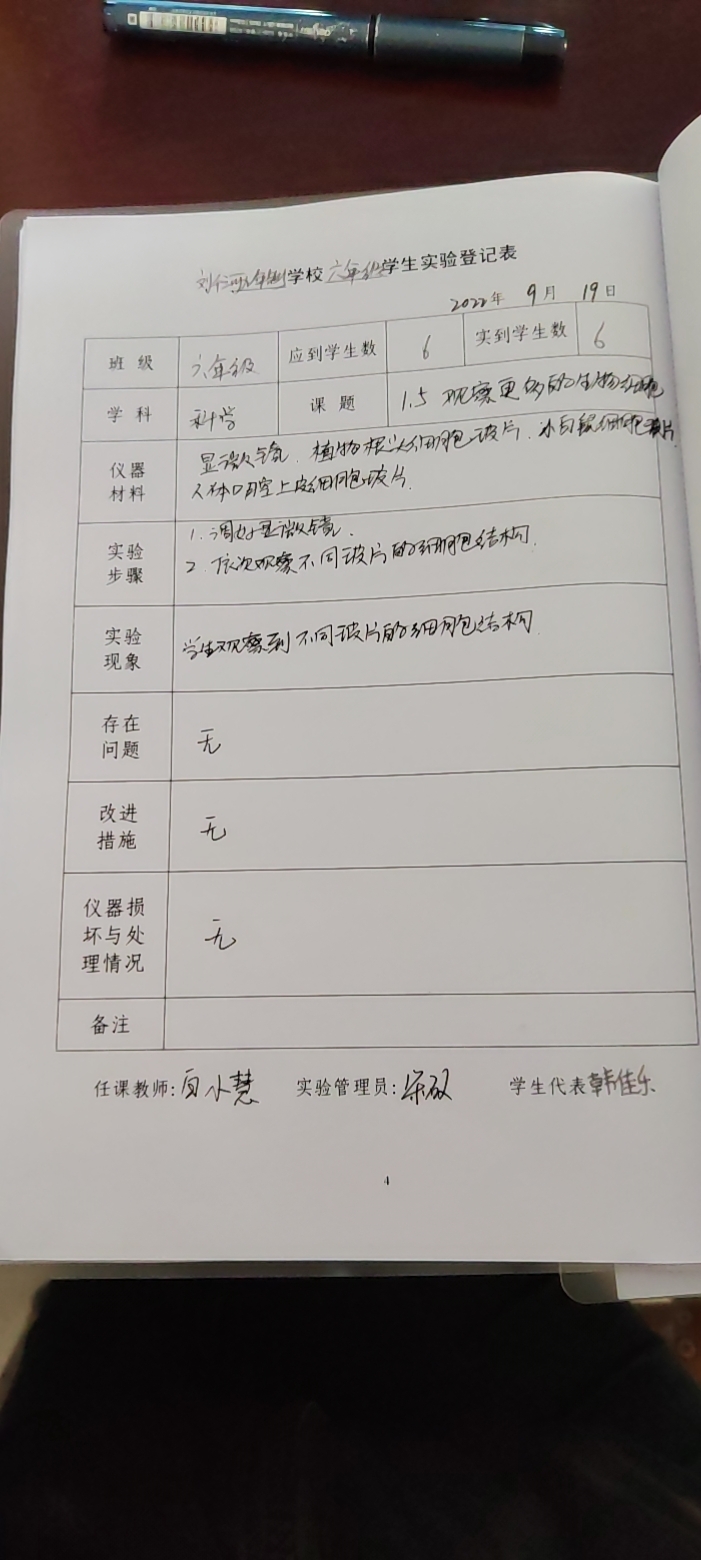 刘仁河九年制学校六年级学生实验登记表
2022年 9月 19日
班 级 六年级 应到学生数 6 实到学生数 6
学 科 科学 课 题 1.5 观察更多的生物细胞
仪器材料 显微镜、植物根尖细胞玻片、小白鼠细胞玻片
人体口腔上皮细胞玻片.
实验步骤 1.调好显微镜.
2.依次观察不同玻片的细胞结构.
实验现象 学生观察到不同玻片的细胞结构.
存在问题 无
改进措施 无
仪器损坏与处理情况 无
备注
任课教师: 白小慧 实验管理员: 学生代表 韩佳乐
4